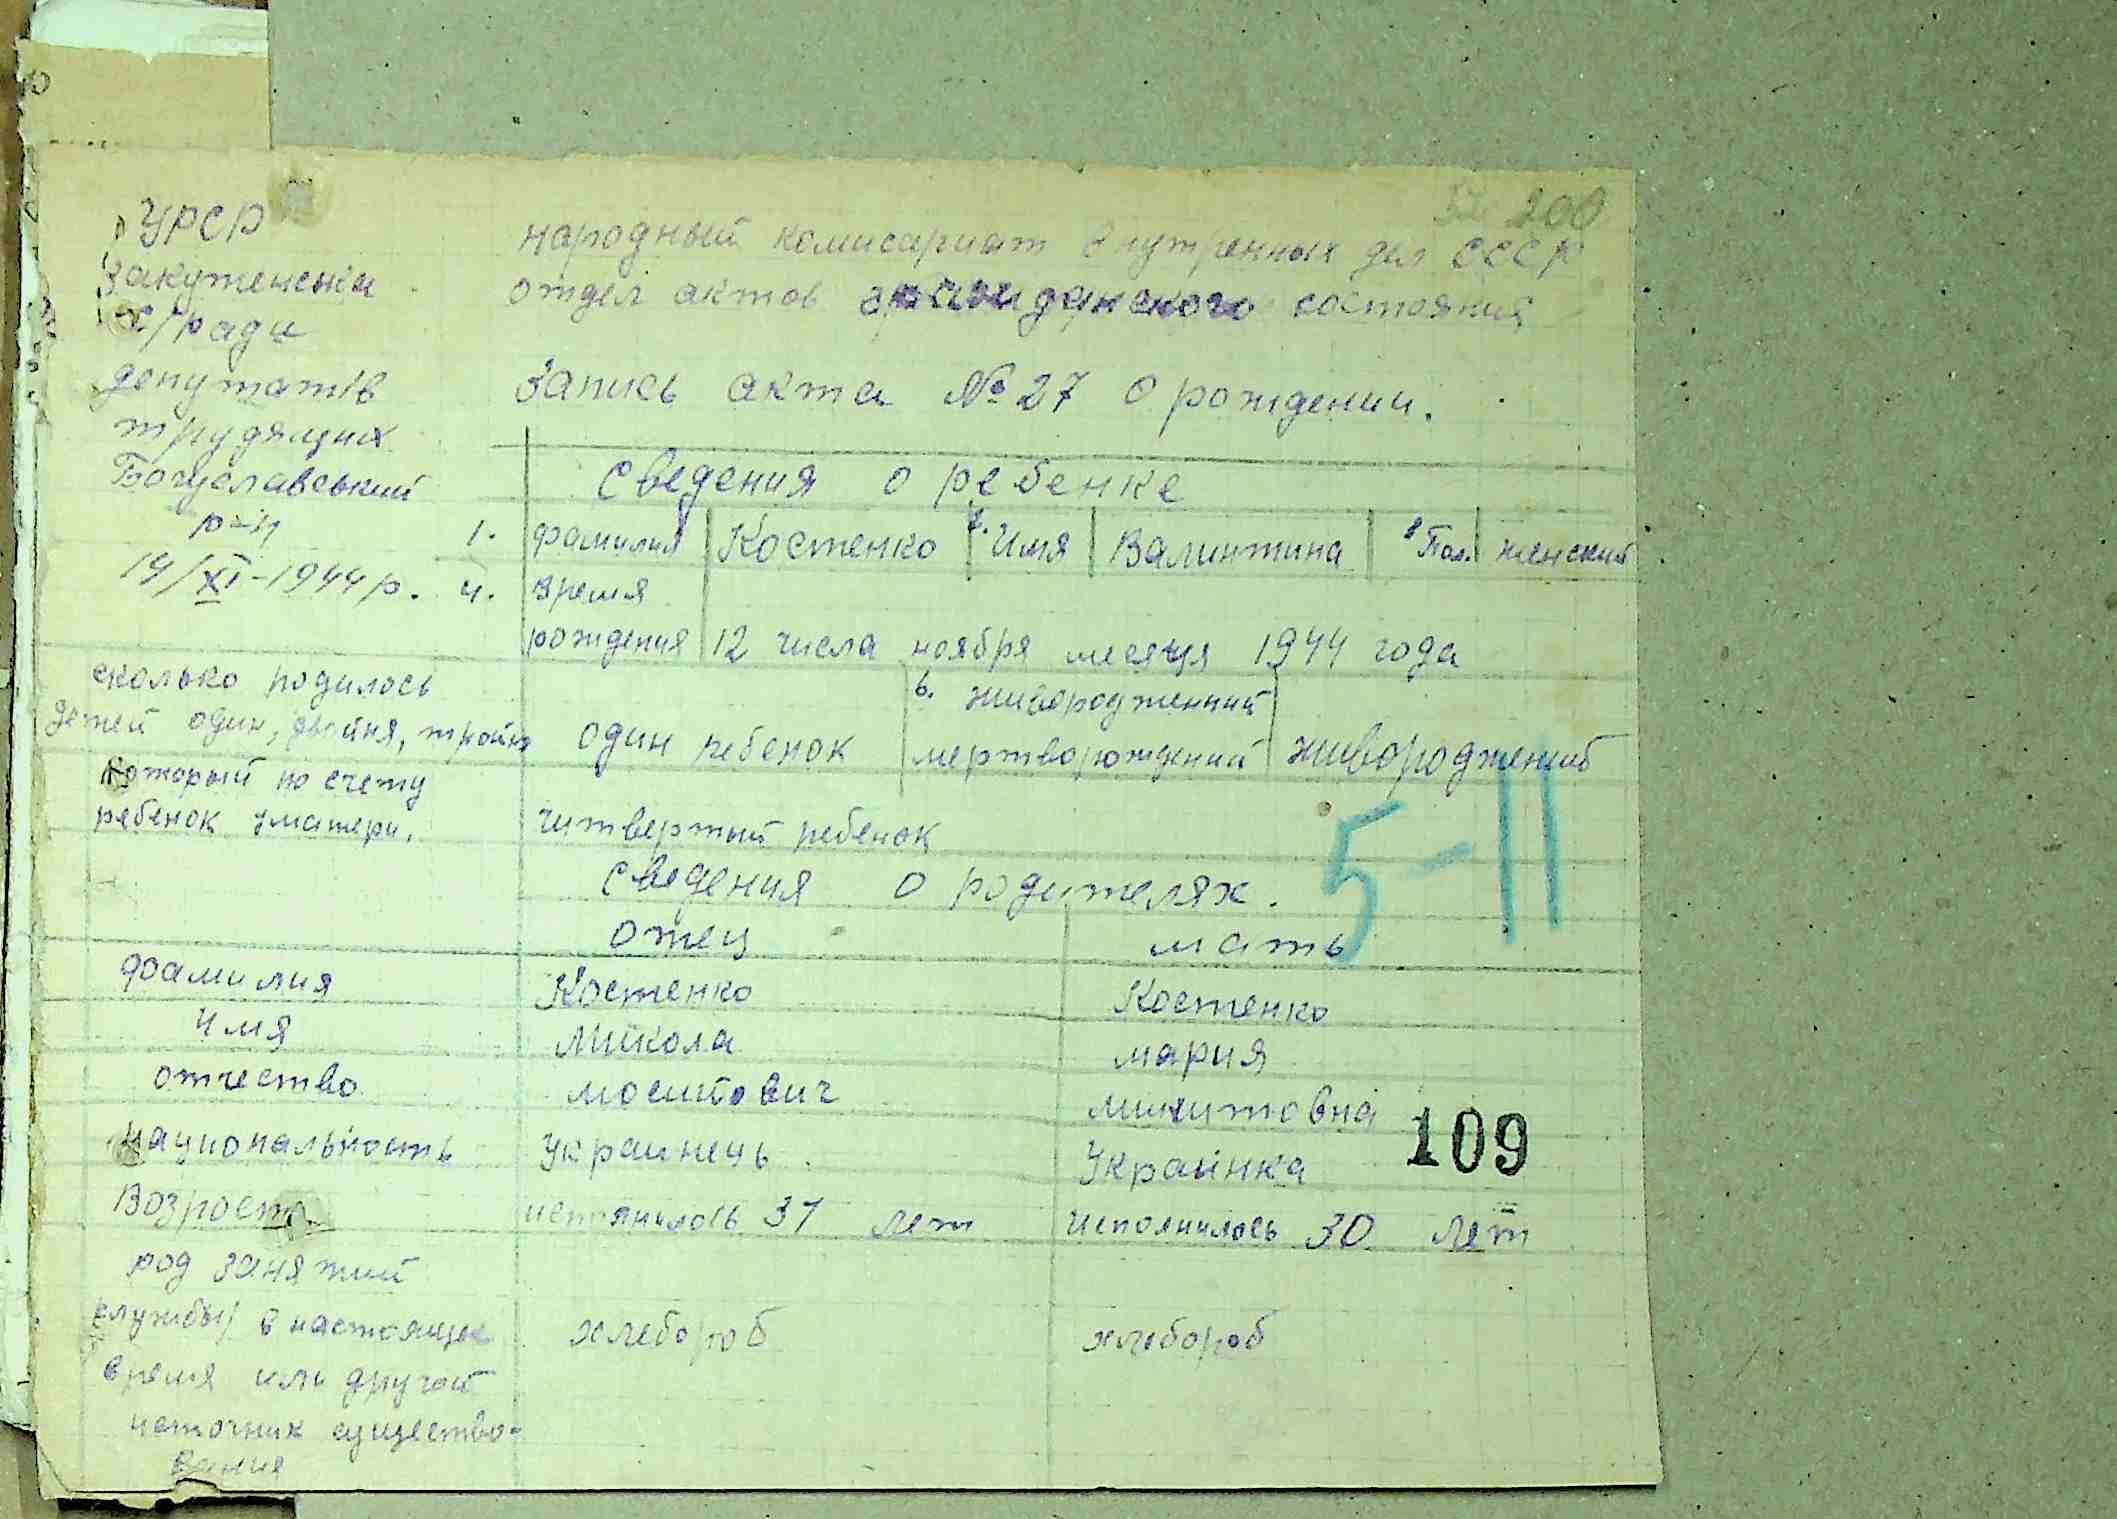 200
УРСР
Закутенська
с/ради
депутатів
трудящих
Богуславський
р-н
14/XI-1944 р.
народный комисариат внутренных дел СССР
отдел актов гражданского состояния
Запись акта № 27 о рождении.
Сведения о ребенке
1. фамилия Костенко 2. Имя Валинтина Пол. женский
4. время
рождения 12 числа ноября месяця 1944 года
сколько родилось
детей один, двойня, тройня один ребенок 6. живородженний
мертворожденний живородженний
который по счету
ребенок у матери. читвертый ребенок
5-11
Сведения о родителях.
отец мать
фамилия Костенко Костенко
имя Микола мария
отчество
109
национальность украинець Украйнка
Возрост исполнилось 37 лет исполнилось 30 лет
род занятий
службы/ в настоящее хлебороб хлебороб
время или другой
источник существо-
вания